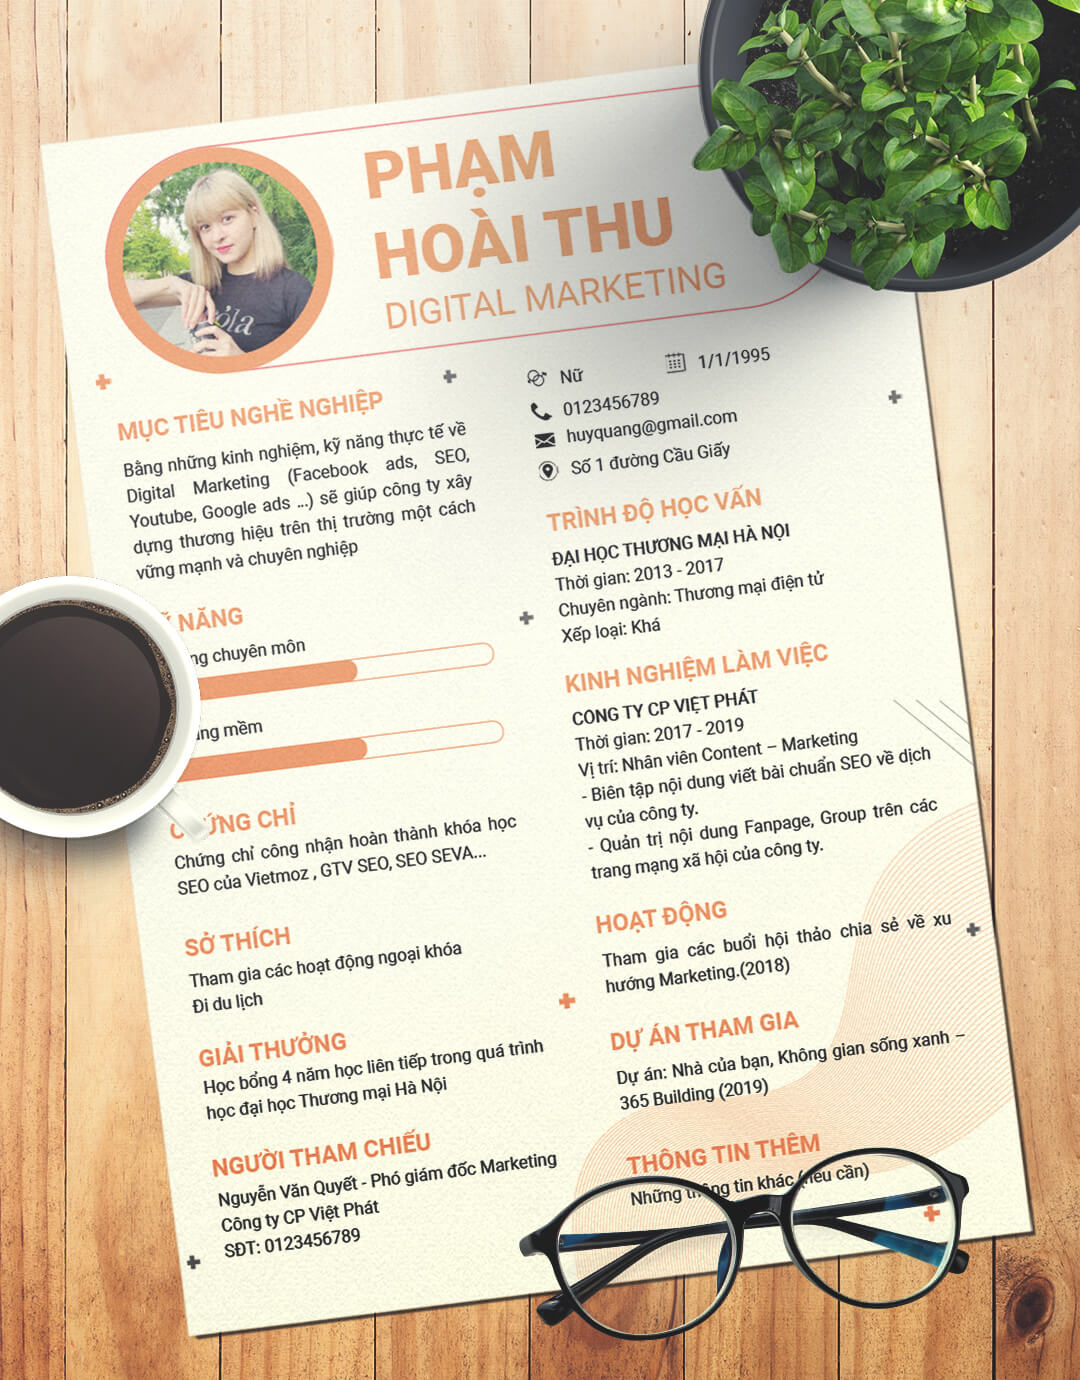 PHẠM
HOÀI THU
DIGITAL MARKETING
Nữ
1/1/1995
0123456789
huyquang@gmail.com
Số 1 đường Cầu Giấy
MỤC TIÊU NGHỀ NGHIỆP
Bằng những kinh nghiệm, kỹ năng thực tế về
Digital Marketing (Facebook ads, SEO,
Youtube, Google ads ...) sẽ giúp công ty xây
dựng thương hiệu trên thị trường một cách
vững mạnh và chuyên nghiệp
NĂNG
chuyên môn
mềm
CHỨNG CHỈ
Chứng chỉ công nhận hoàn thành khóa học
SEO của Vietmoz , GTV SEO, SEO SEVA...
SỞ THÍCH
Tham gia các hoạt động ngoại khóa
Đi du lịch
GIẢI THƯỞNG
Học bổng 4 năm học liên tiếp trong quá trình
học đại học Thương mại Hà Nội
NGƯỜI THAM CHIẾU
Nguyễn Văn Quyết - Phó giám đốc Marketing
Công ty CP Việt Phát
SĐT: 0123456789
TRÌNH ĐỘ HỌC VẤN
ĐẠI HỌC THƯƠNG MẠI HÀ NỘI
Thời gian: 2013 - 2017
Chuyên ngành: Thương mại điện tử
Xếp loại: Khá
KINH NGHIỆM LÀM VIỆC
CÔNG TY CP VIỆT PHÁT
Thời gian: 2017 - 2019
Vị trí: Nhân viên Content – Marketing
- Biên tập nội dung viết bài chuẩn SEO về dịch
vụ của công ty.
- Quản trị nội dung Fanpage, Group trên các
trang mạng xã hội của công ty.
HOẠT ĐỘNG
Tham gia các buổi hội thảo chia sẻ về xu
hướng Marketing.(2018)
DỰ ÁN THAM GIA
Dự án: Nhà của bạn, Không gian sống xanh –
365 Building (2019)
THÔNG TIN THÊM
Những thông tin khác (nếu cần)